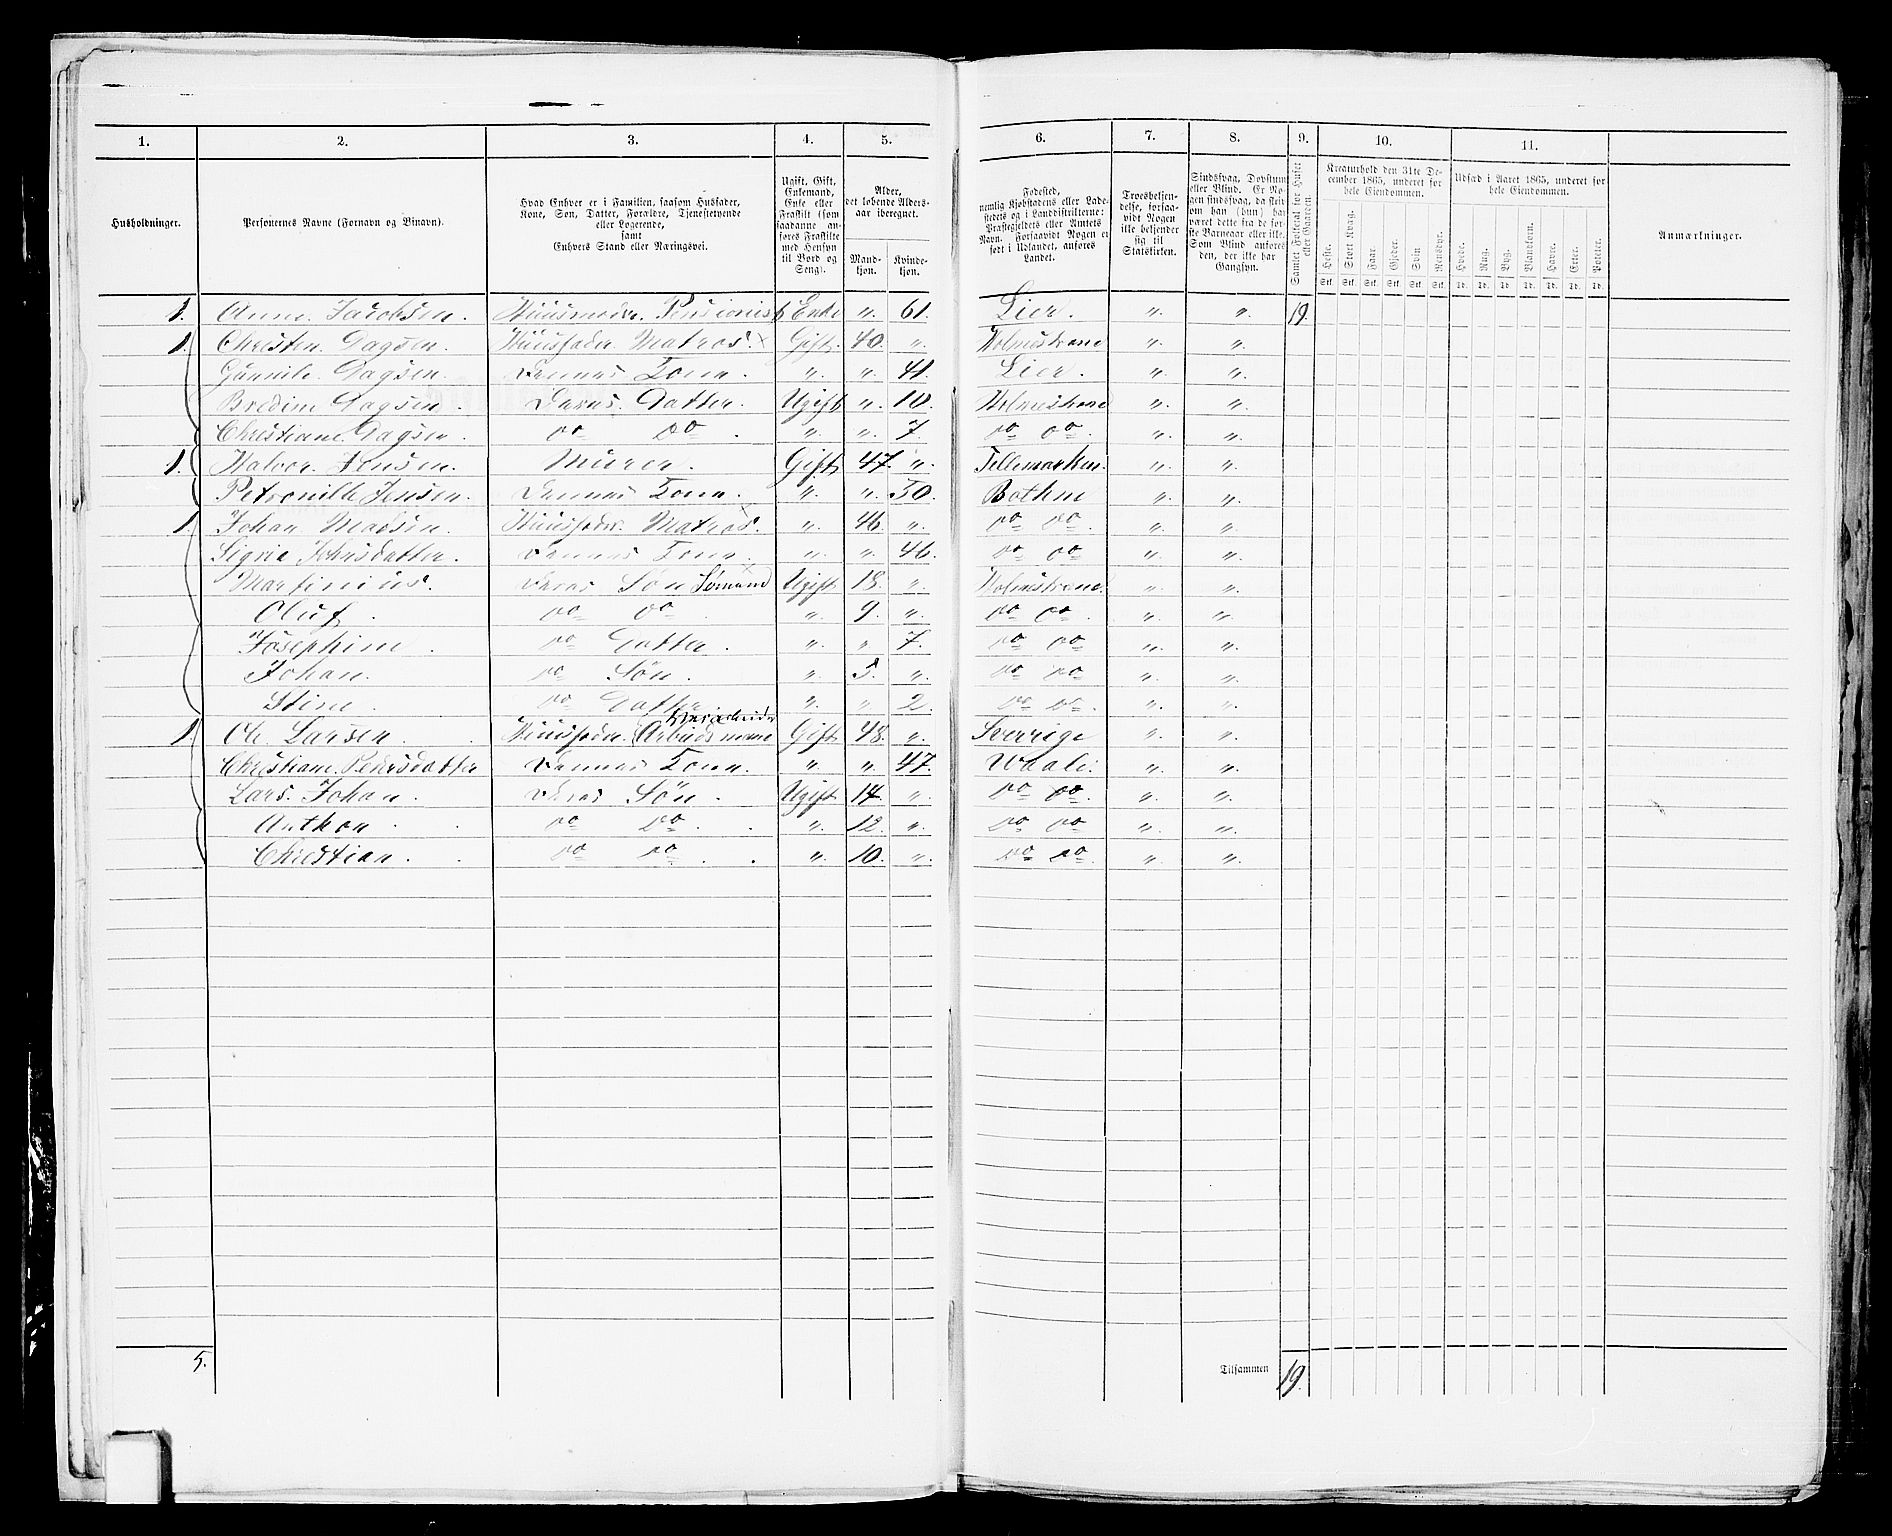 1. 2. 3. 4. 5. 6. 7. 8. 9. 10. 11.
Husholdninger.
Personernes Navne (Fornavn og Binavn).
Hvad Enhver er i Familien, saasom Husfader, Kone, Søn, Datter, Forældre, Tjenestetyende eller Logerende, samt Enhvers Stand eller Næringsvei.
Ugift, Gift, Enkemand, Enke eller Fraskilt (som saadanne anføres Fraskilte med Hensyn til Bord og Seng).
Alder, det løbende Aldersaar iberegnet.
Mandkjøn. Kvindekjøn.
Fødested, nemlig Kjøbstadens eller Ladestedets og i Landdistrikterne: Præstegjeldets eller Amtets Navn. Forsaavidt Nogen er født i Udlandet, anføres Landet.
Troesbekjendelse, forsaavidt Nogen ikke bekjender sig til Statskirken.
Sindssvag, Døvstum eller Blind. Er Nogen sindssvag, da skrives om han (hun) har været dette fra de første Barneaar eller ikke. Som Blind anføres den, der ikke har Gangsyn.
Samlet Folketal for Huset eller Gaarden.
Kreaturhold den 31te December 1865, underet for hele Eiendommen.
Heste. Stort Kvæg. Faar. Gjeder. Svin Rensdyr.
Stk. Stk. Stk. Stk. Stk. Stk.
Udsæd i Aaret 1865, underet for hele Eiendommen.
Hvede. Rug. Byg. Blandkorn. Havre. Erter. Poteter.
Td. Td. Td. Td. Td. Td. Td.
Anmærkninger.
1. Anne Jacobsen. Huusmoder. Pensionist Enke „ 61. Lier. „ „ 19.
1. Christen Dagsen. Huusfader Matros. Gift 40. „ Holmestrand „ „
Gunnild Dagsen. Dennes Kone. „ „ 41. Lier. „ „
Bredine Dagsen. Deres Datter. Ugift „ 10. Holmestrand „ „
Christiane Dagsen. do do „ „ 7. do do „ „
1. Halvor Jensen. Murer. Gift 47. „ Tellemarken. „ „
Petronille Jensen. Dennes Kone. „ „ 50. Bothne „ „
1. Johan Madsen. Huusfader. Matros. „ 46. „ do do „ „
Sigrie Johnsdatter. Dennes Kone. „ „ 46. do do „ „
Martinius. Deres Søn Sømand Ugift 18. „ Holmestrand. „ „
Oluf. do do „ 9. „ do do „ „
Josephine. do Datter. „ „ 7. do do „ „
Johan. do Søn. „ 5. „ do do „ „
Stine. do Datter „ „ 2. do do „ „
1. Ole Larsen. Huusfader. Arbeidsmand Gift 48. „ Sverrige „ „
Christiane Pedersdatter Dennes Kone. „ „ 47. Waale. „ „
Lars Johan. Deres Søn. Ugift 14. „ do do „ „
Anthon. do do „ 12. „ do do „ „
Christian. do do „ 10. „ do do „ „
5. Tilsammen 19.